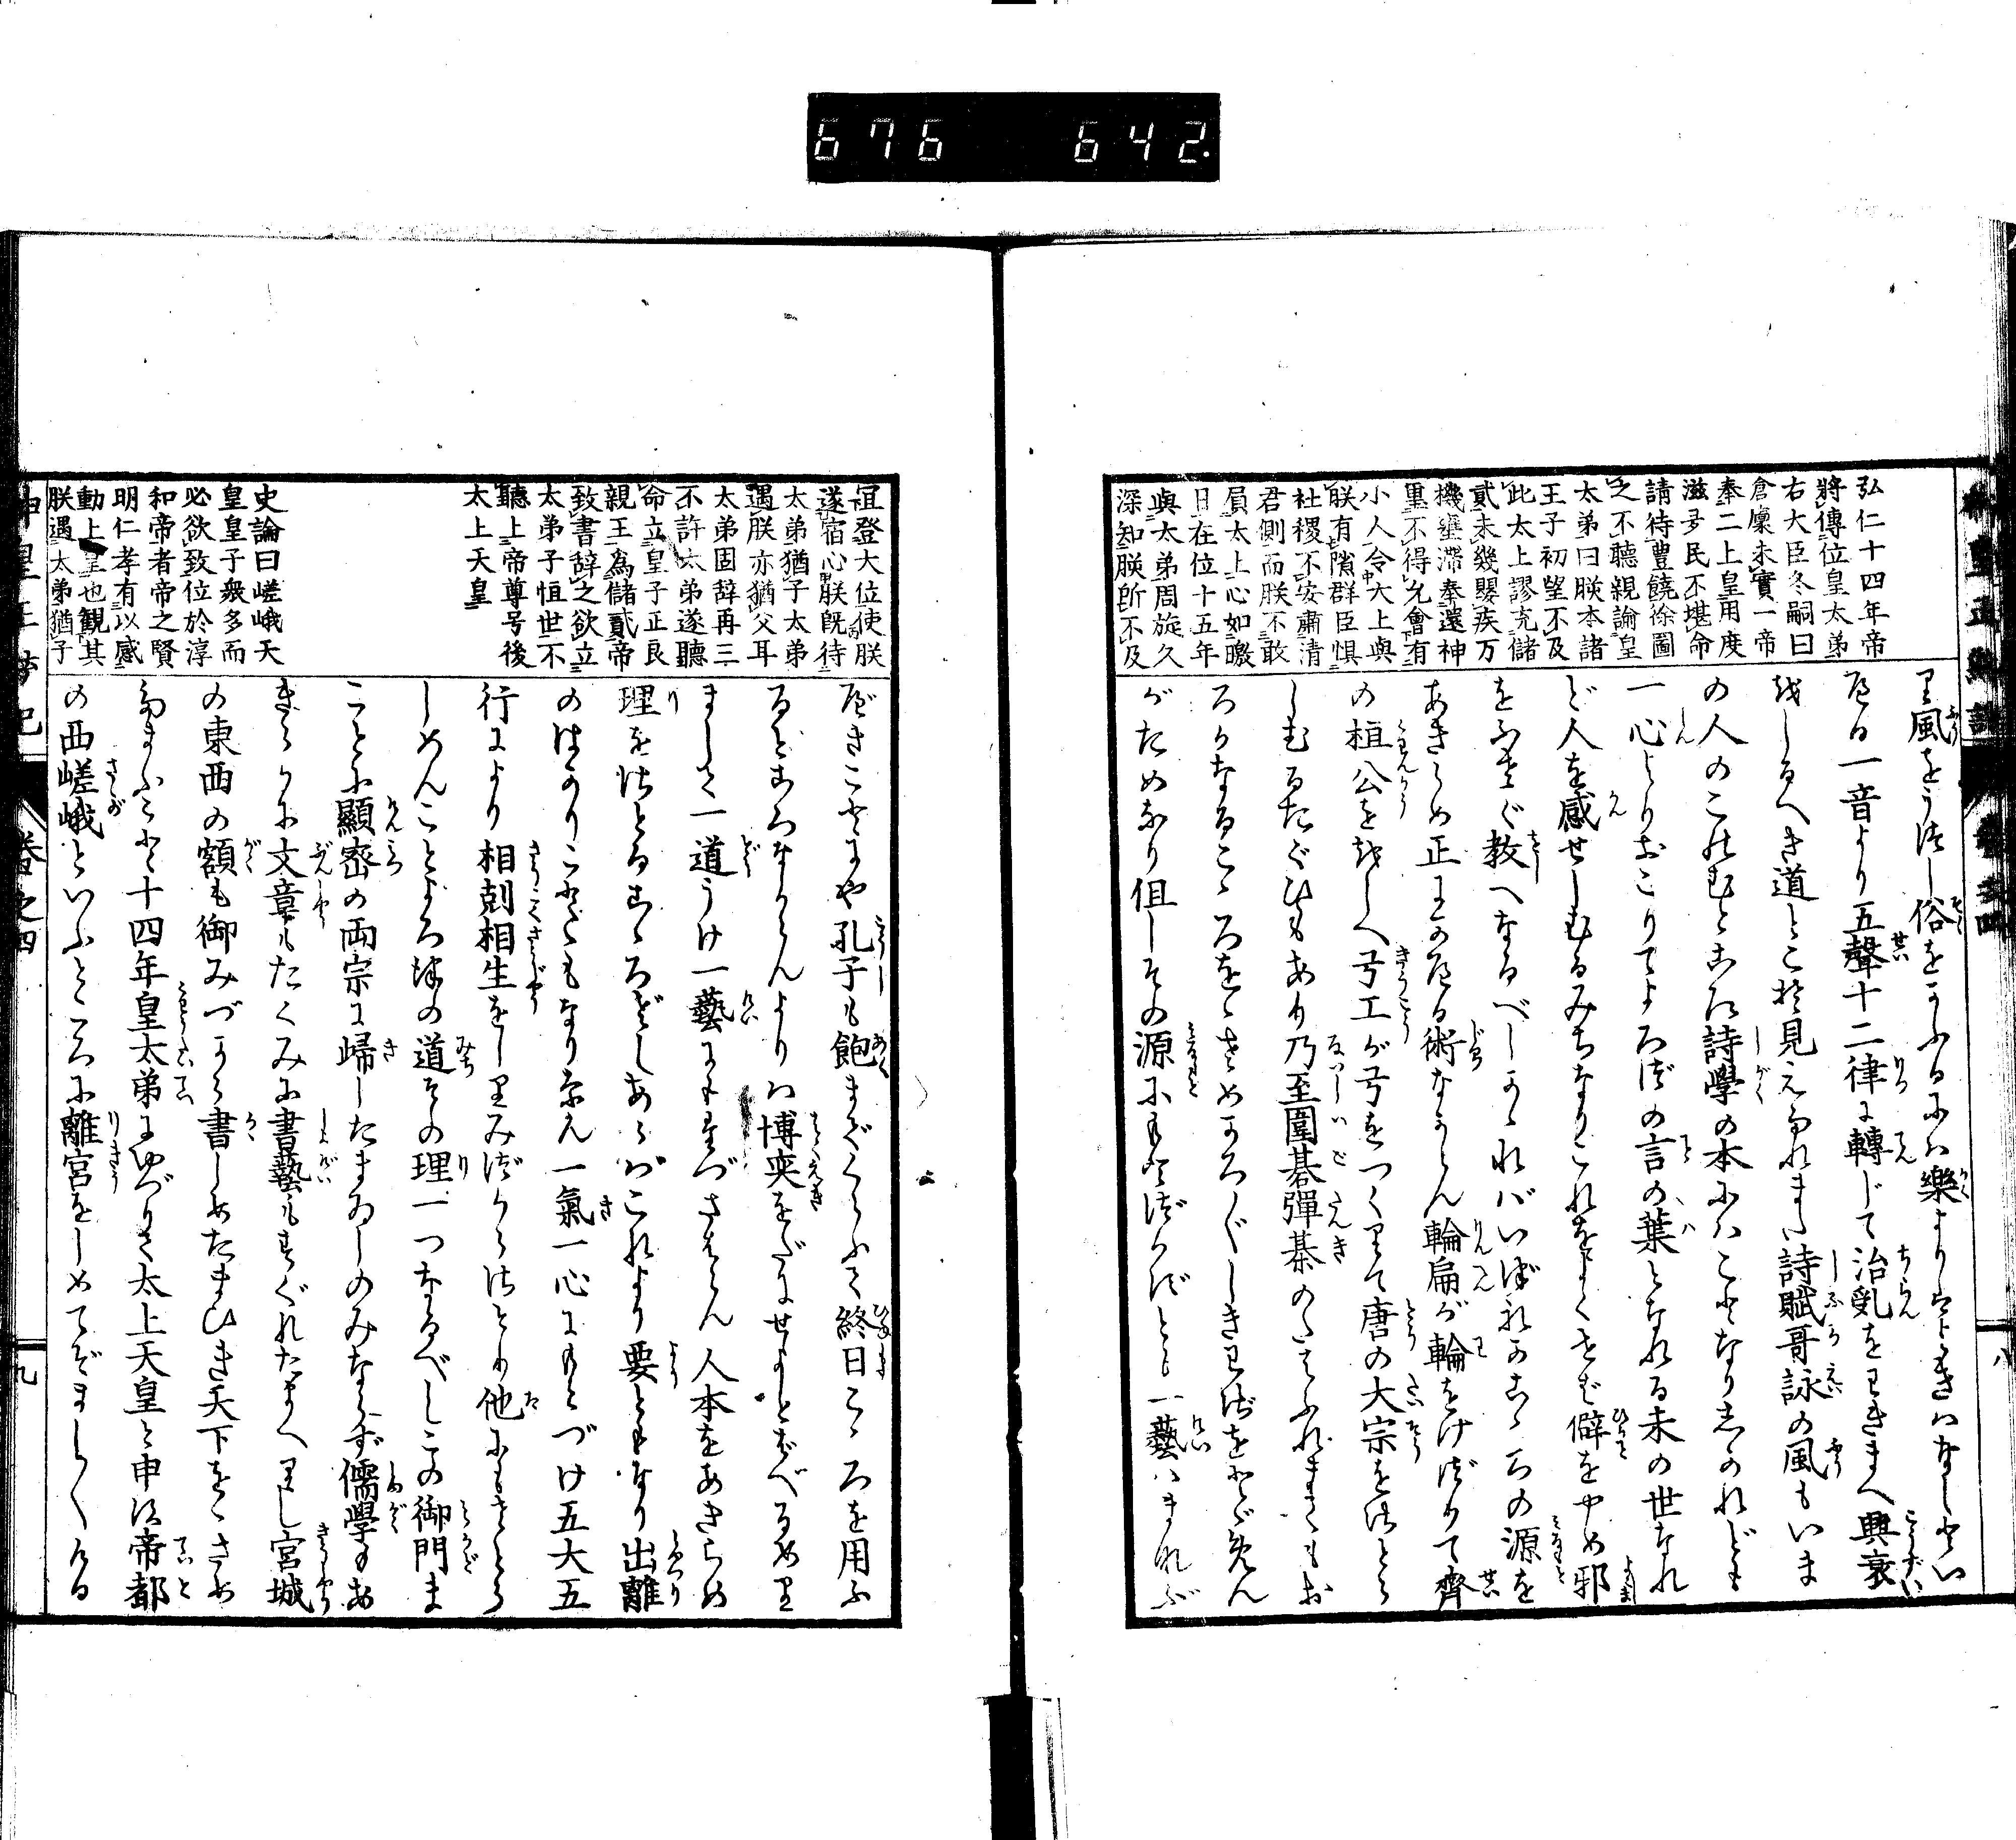 676 642.
弘仁十四年帝
將傳位皇太弟
右大臣冬嗣曰
倉廩未實一帝
奉二上皇用度
滋多民不堪命
請待豊饒徐圖
之不聽親諭皇
太弟曰朕本諸
王子初望不及
此太上謬充儲
貳未幾嬰疾万
機壅滯奉還神
璽不得允會有
小人令太上與
朕有隙群臣惧
社稷不安肅清
君側而朕不敢
負太上心如皦
日在位十五年
與太弟周旋久
深知朕所不及
り風をうつし俗をかふるには樂よりよきはなしといへ
る一音より五聲十二律に轉じて治乱をわきまへ興衰
をしるへき道とこそ見えたれまた詩賦哥詠の風もいま
の人のこのむところ詩學の本にはことなりしかれども
一心よりおこりてよろづの言の葉となれる末の世なれ
ど人を感せしむるみちなりこれをよくせば僻をやめ邪
をふせぐ教へなるべしかゝればいづれかこゝろの源を
あきらめ正にかへる術なからん輪扁が輪をけづりて齊
の桓公ををしへ弓工が弓をつくりて唐の大宗をさとら
しむるたぐひもあり乃至圍碁彈棊のたはふれまでもお
ろかなるこゝろををさめかろ〴〵しきわざをとゞめん
がためなり但しその源にもとづかずとも一藝はまなぶ
誼登大位使朕
遂宿心朕既待
太弟猶子太弟
遇朕亦猶父耳
太弟固辞再三
不許太弟遂聽
命立皇子正良
親王爲儲貳帝
致書辞之欲立
太弟子恒世不
聽上帝尊号後
太上天皇
史論曰嵯峨天
皇皇子衆多而
必欲致位於淳
和帝者帝之賢
明仁孝有以感
動上皇也観其
朕遇太弟猶子
べきことにや孔子も飽まざくらふて終日こゝろを用ふ
るところなからんよりは博奕をだにせよとはべるめり
まして一道うけ一藝にもたづさはらん人本をあきらめ
理をさとるこゝろざしあらばこれより要ともなり出離
のはかりことゝもなりなん一氣一心にもとづけ五大五
行により相剋相生をしりみづからさとり他にもさとら
しめんことよろづの道その理一つなるべしこの御門ま
ことに顯密の両宗に歸したまゐしのみならず儒學もあ
きらかに文章もたくみに書藝もすぐれたまへりし宮城
の東西の額も御みづから書しめたまひき天下をゝさめ
たまふこと十四年皇太弟にゆづりて太上天皇と申す帝都
の西嵯峨といふところに離宮をしめてぞまし〳〵ける
卷之四
九
八